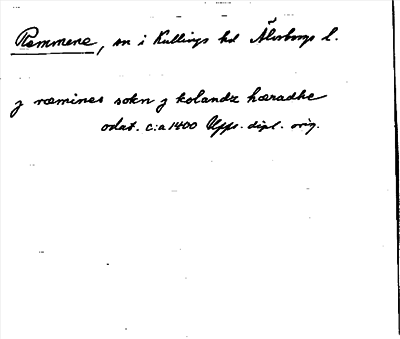 Remmene, sn i Kullings hd Älvsborgs l.
j ræmines sokn j kolandz hæradhe
odat. c:a 1400 Upps. dipl. orig.